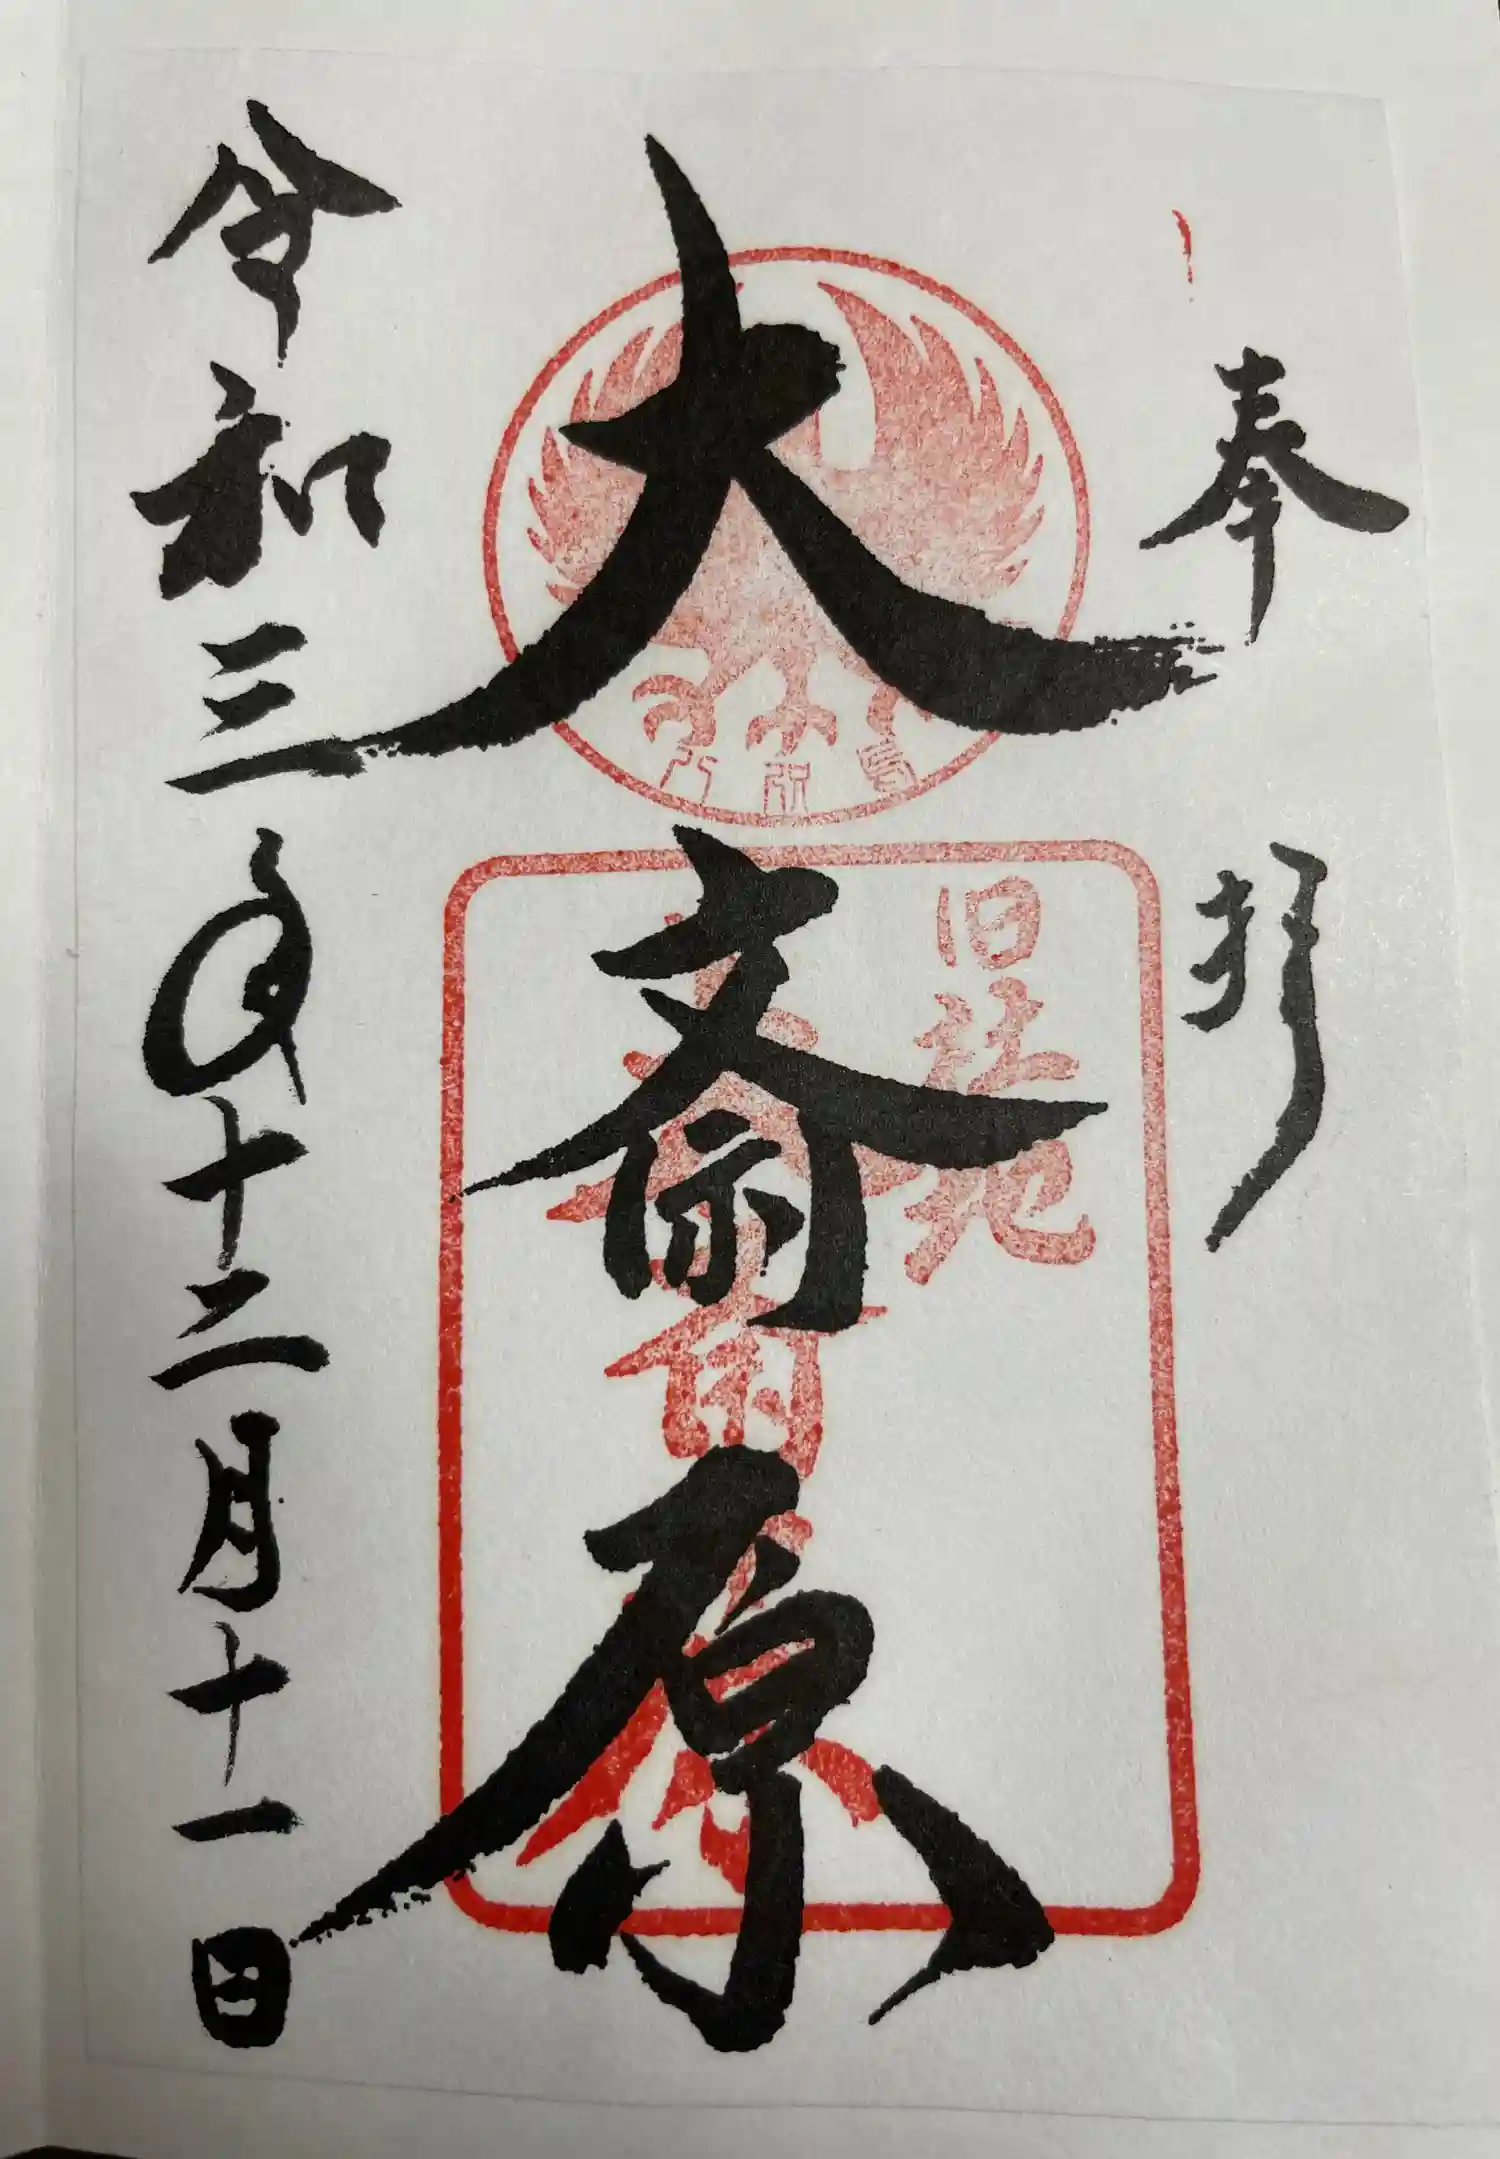 奉拝
大斎原
旧社地
大斎原
八咫烏
令和三年十二月十一日